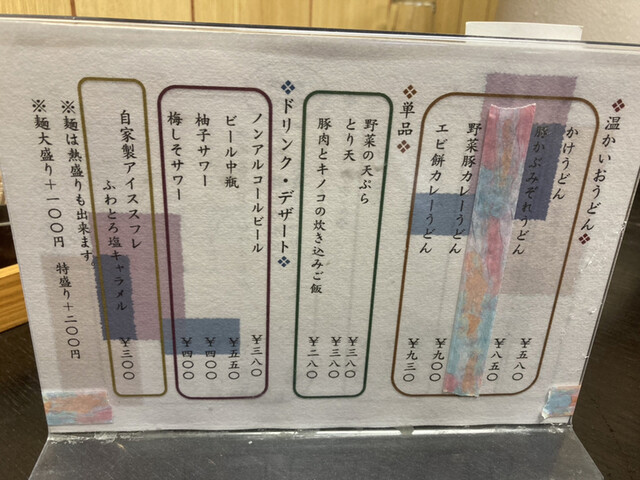 ❖温かいおうどん❖
かけうどん ¥五八〇
豚かぶみぞれうどん ¥八五〇
野菜豚カレーうどん ¥九〇〇
エビ餅カレーうどん ¥九三〇
❖単品❖
野菜の天ぷら ¥三八〇
とり天 ¥三八〇
豚肉とキノコの炊き込みご飯 ¥二八〇
❖ドリンク・デザート❖
ノンアルコールビール ¥三八〇
ビール中瓶 ¥五五〇
柚子サワー ¥四〇〇
梅しそサワー ¥四〇〇
自家製アイススフレ
ふわとろ塩キャラメル ¥三〇〇
※麺は熱盛りも出来ます。
※麺大盛り+一〇〇円 特盛り+二〇〇円